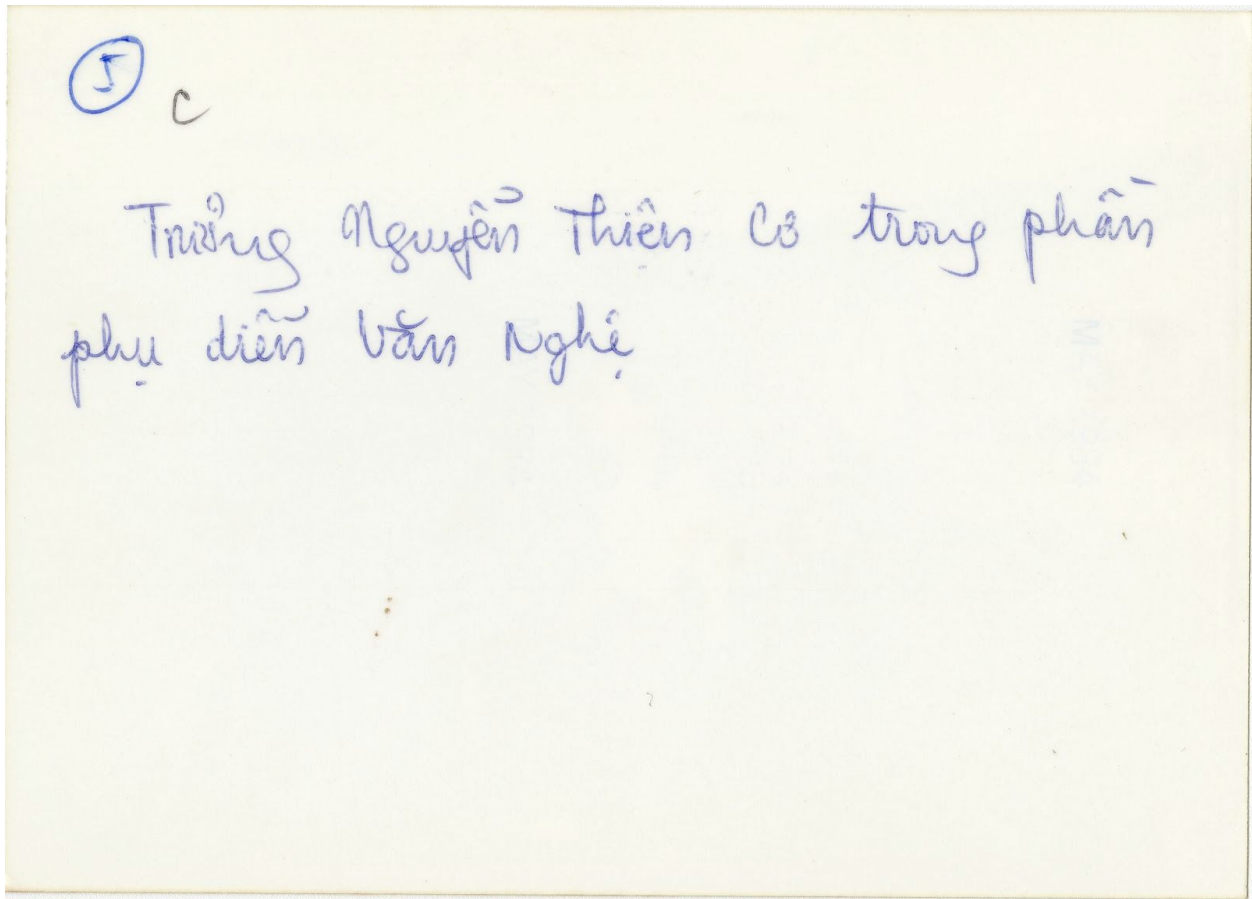 5
C
Trưởng Nguyễn Thiện Cơ trong phần
phụ diễn Văn Nghệ